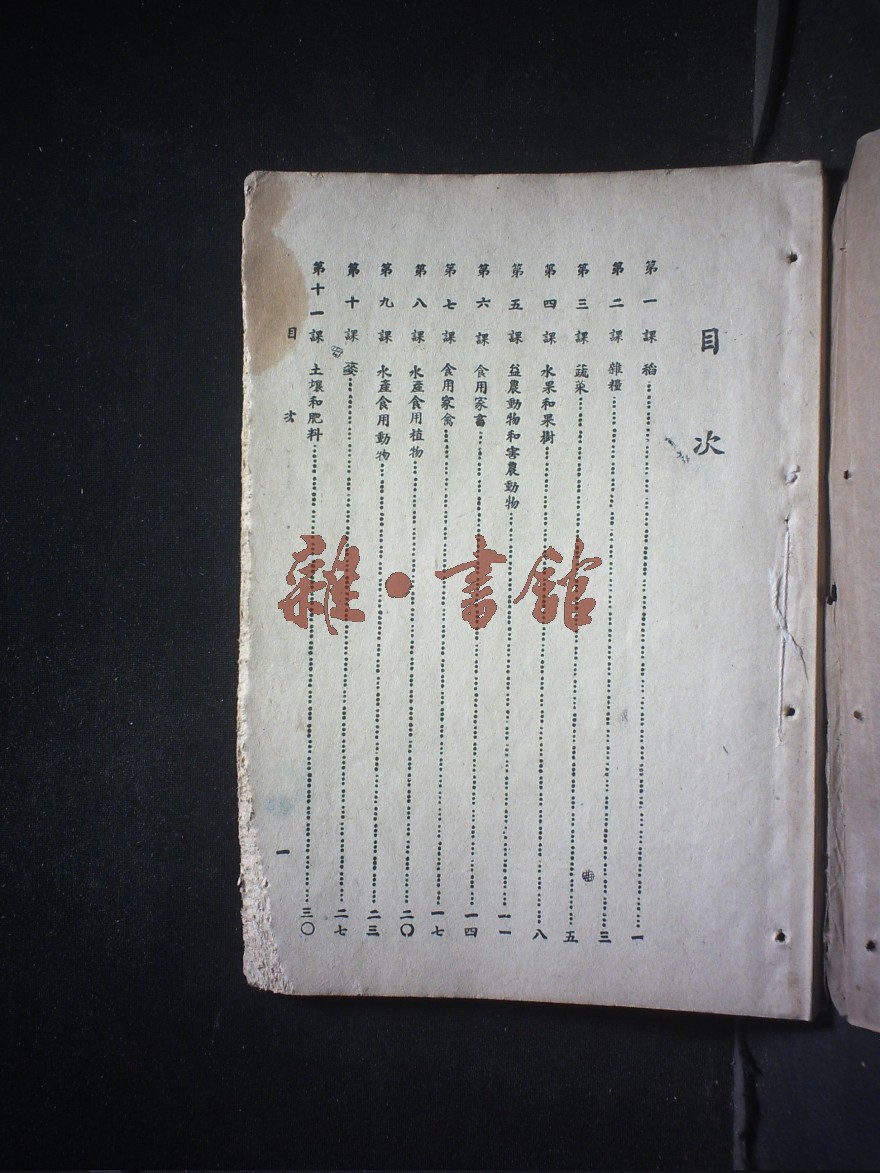 目次
第一課 稻……一
第二課 雜糧……三
第三課 蔬菜……五
第四課 水果和果樹……八
第五課 益農動物和害農動物……一一
第六課 食用家畜……一四
第七課 食用家禽……一七
第八課 水產食用植物……二〇
第九課 水產食用動物……二三
第十課 ……二七
第十一課 土壤和肥料……三〇
目次
一
雜·書館